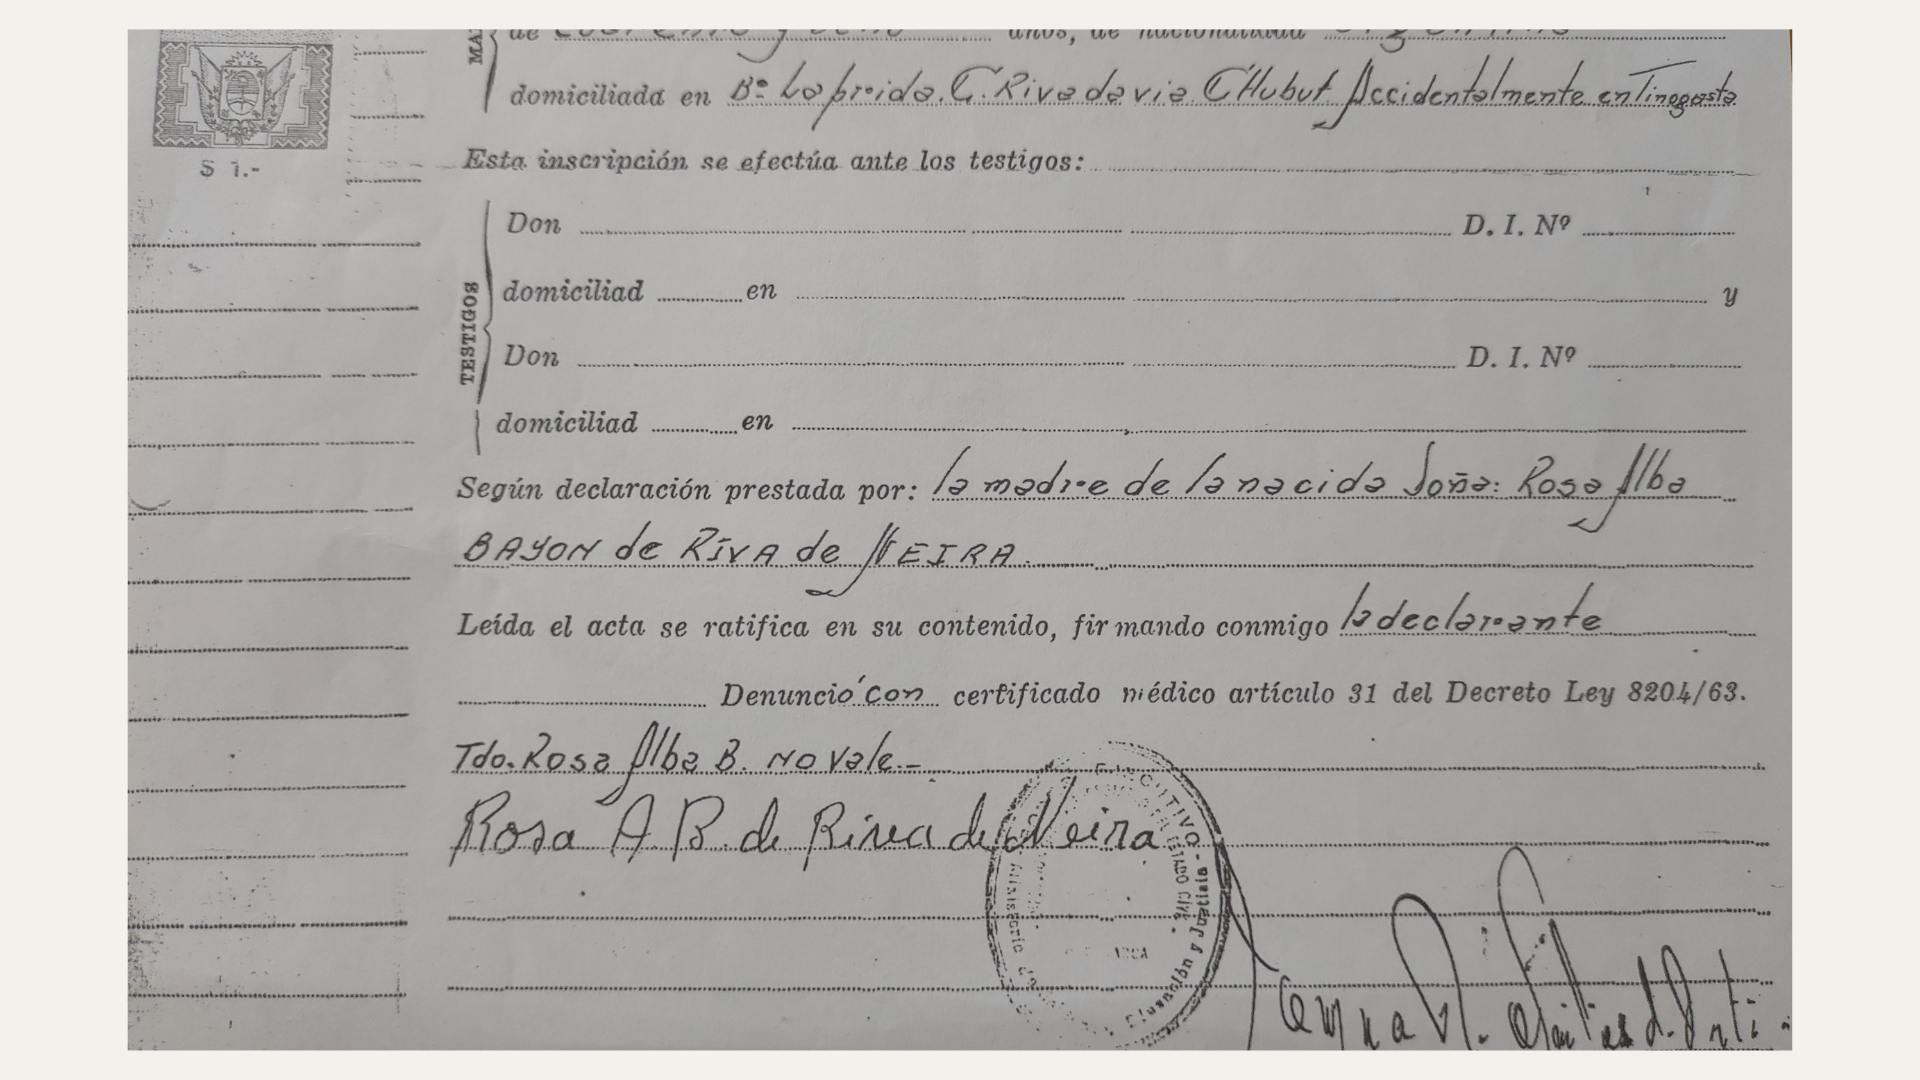 MA
de cuarenta y ocho años, de nacionalidad argentina
domiciliada en Bº Laprida. C. Rivadavia CHubut Accidentalmente en Tinogasta
$ 1.-
Esta inscripción se efectúa ante los testigos:
TESTIGOS
Don D. I. Nº
domiciliad en y
Don D. I. Nº
domiciliad en
Según declaración prestada por: la madre de la nacida Doña: Rosa Alba
BAYON de RIVA de NEIRA.
Leída el acta se ratifica en su contenido, firmando conmigo la declarante
Denunció con certificado médico artículo 31 del Decreto Ley 8204/63.
Tdo. Rosa Alba B. NO Vale.-
Rosa A. B. de Riva de Neira
EJECUTIVO - ESTADO CIVIL
Ministerio de Educación y Justicia